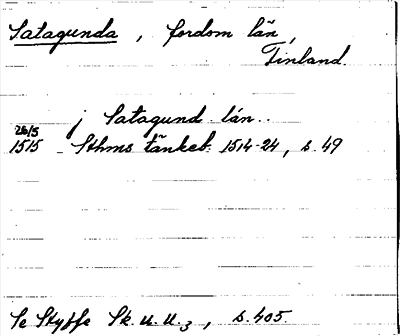 Satagunda, fordom län,
Finland.
j Satagund län..
26/5
1515 Sthms tänkeb. 1514-24, s. 49
Se Styffe Sk. u. U. 3, s. 405.